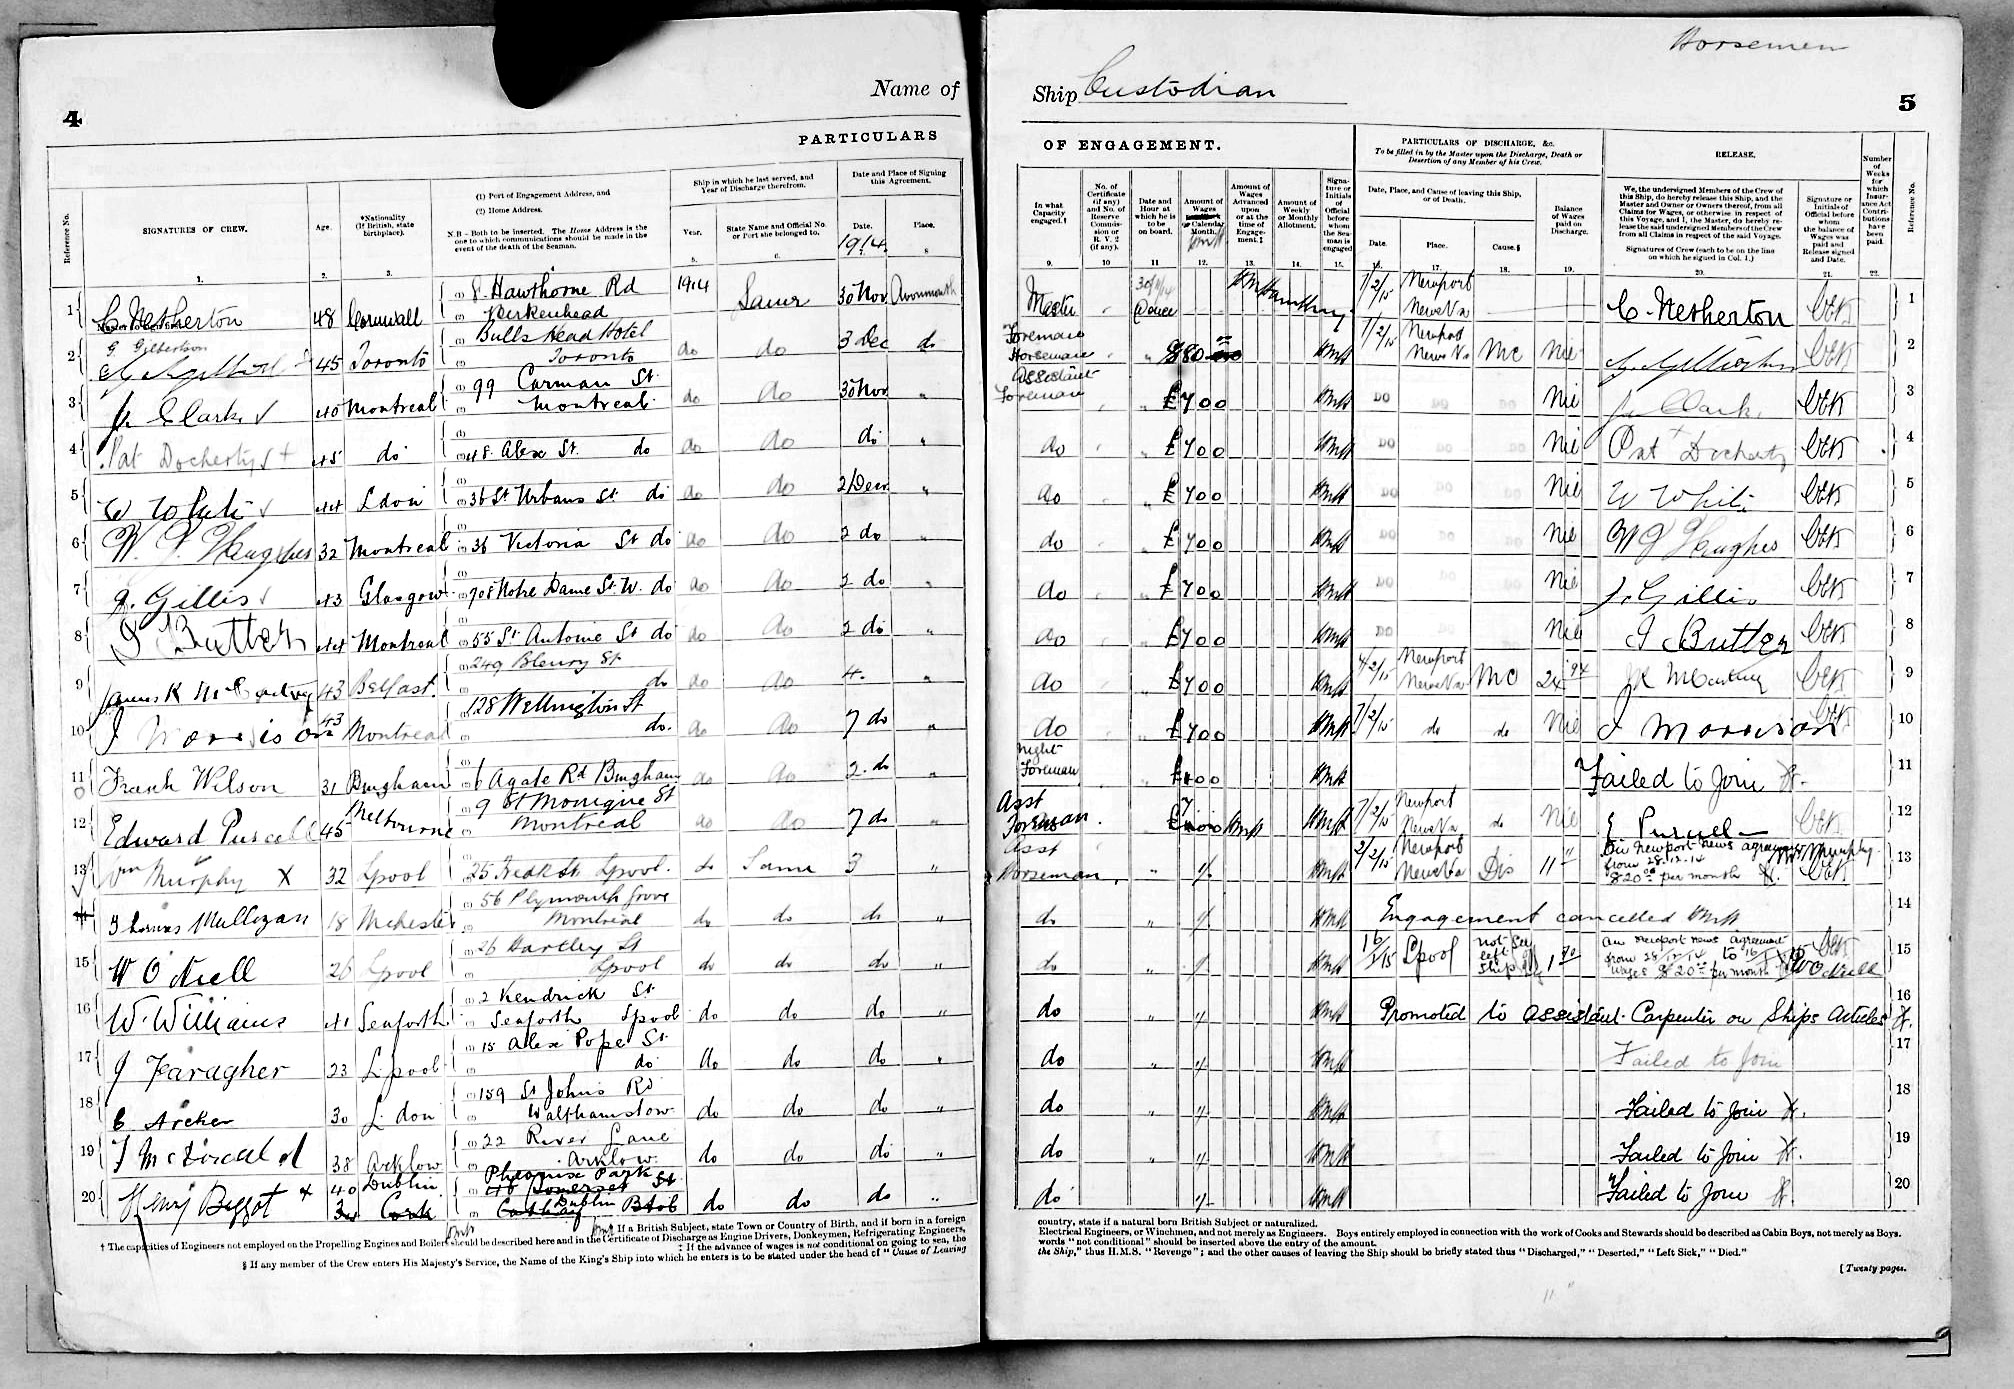 Horsemen
Name of Ship Custodian
4
5
PARTICULARS OF ENGAGEMENT.
PARTICULARS OF DISCHARGE, &c.
To be filled in by the Master upon the Discharge, Death or Desertion of any Member of his Crew.
RELEASE.
Reference No.
SIGNATURES OF CREW.
Age.
*Nationality (If British, state birthplace).
(1) Port of Engagement Address, and
(2) Home Address.
N.B - Both to be inserted. The Home Address is the one to which communications should be made in the event of the death of the Seaman.
Ship in which he last served, and Year of Discharge therefrom.
Year.
State Name and Official No. or Port she belonged to.
Date and Place of Signing this Agreement.
Date.
1914
Place.
In what Capacity engaged.†
No. of Certificate (if any) and No. of Reserve Commission or R. V. 2 (if any).
Date and Hour at which he is to be on board.
Amount of Wages Calendar Month.
Amount of Wages Advanced upon or at the time of Engagement.‡
Amount of Weekly or Monthly Allotment.
Signature or Initials of Official before whom the Seaman is engaged
Date, Place, and Cause of leaving this Ship, or of Death.
Date.
Place.
Cause.§
Balance of Wages paid on Discharge.
We, the undersigned Members of the Crew of this Ship, do hereby release this Ship, and the Master and Owner or Owners thereof, from all Claims for Wages, or otherwise in respect of this Voyage, and I, the Master, do hereby release the said undersigned Members of the Crew from all Claims in respect of the said Voyage.
Signatures of Crew (each to be on the line on which he signed in Col. 1.)
Signature or Initials of Official before whom the balance of Wages was paid and Release signed and Date.
Number of Weeks for which Insurance Act Contributions have been paid.
Reference No.
1 C. Netherton 48 Cornwall 8 Hawthorne Rd Birkenhead 1914 Same 30 Nov Avonmouth Master 1/2/15 Newport News Va C. Netherton 1
2 G Gilbertson 45 Toronto Bulls Head Hotel Toronto do do 3 Dec do Foreman Horseman $80 7/2/15 Newport News Va MC Nil 2
3 J. Clark 40 Montreal 99 Carman St. Montreal do do 30 Nov " Assistant Foreman £700 do do do Nil J. Clark 3
4 Pat Docherty 45 do 48 Alex St. do do do do " do £700 do do do Nil Pat Docherty 4
5 W White 44 Ldon 36 St Urbans St do do do 2 Decr " do £700 do do do Nil W White 5
6 W. J. Haughes 32 Montreal 36 Victoria St do do do 2 do " do £700 do do do Nil W J Haughes 6
7 J. Gillis 43 Glasgow 708 Notre Dame St W. do do do 2 do " do £700 do do do Nil J. Gillis 7
8 J Butler 44 Montreal 55 St Antoine St do do do 2 do " do £700 do Nil J Butler 8
9 James K McCartney 43 Belfast. 249 Bleury St do do do 4 " do £700 4/2/15 Newport News Va MC 24 94 J K McCartney 9
10 J Morrison 43 Montreal 128 Wellington St do. do do 7 do " do £700 7/2/15 do do Nil J Morrison 10
11 Frank Wilson 31 Bingham 6 Agate Rd Bingham do do 2. do " Night Foreman Failed to Join 11
12 Edward Purcell 45 Melbourne Montreal do do 7 do " Asst Foreman 7/2/15 Newport News Va do Nil E Purcell 12
13 Wm Murphy X 32 Lpool Lpool. do Same 3 " Asst Horseman " 1/- 2/2/15 Newport News Va Dis 11 On Newport News agreement from 28.12.14 $20 per month Wm Murphy 13
14 Thomas Mulligan 18 Mchester 56 Plymouth Grove Montreal do do do " do " 1/- Engagement cancelled 14
15 W O'Niell 26 Lpool 26 Hartley St Lpool do do do " do " 1/- 16/2/15 Lpool not left ship On Newport News agreement from 28/12/14 to 16/2/15 Wages $20 per month W O Niell 15
16 W. Williams 41 Seaforth 2 Kendrick St Seaforth Lpool do do do " do " 1/- Promoted to Assistant Carpenter on Ships Articles 16
17 J Faragher 23 Lpool 15 Alex Pope St. do do do do " do " 1/- Failed to Join 17
18 C Archer 30 L don 159 St Johns Rd Walthamstow do do do " do " 1/- Failed to Join 18
19 J McDonald 38 Arklow 22 River Lane Arklow. do do do " do " 1/- Failed to Join 19
20 Henry Biggot x 40 Dublin Cork Pheonix Park Somerset St Dublin do do do " do 1/- Failed to Join 20
* If a British Subject, state Town or Country of Birth, and if born in a foreign country, state if a natural born British Subject or naturalized.
† The capacities of Engineers not employed on the Propelling Engines and Boilers should be described here and in the Certificate of Discharge as Engine Drivers, Donkeymen, Refrigerating Engineers, Electrical Engineers, or Winchmen, and not merely as Engineers. Boys entirely employed in connection with the work of Cooks and Stewards should be described as Cabin Boys, not merely as Boys.
‡ If the advance of wages is not conditional on going to sea, the words "not conditional" should be inserted above the entry of the amount.
§ If any member of the Crew enters His Majesty's Service, the Name of the King's Ship into which he enters is to be stated under the head of "Cause of Leaving the Ship," thus H.M.S. "Revenge"; and the other causes of leaving the Ship should be briefly stated thus "Discharged," "Deserted," "Left Sick," "Died."
[Twenty pages.